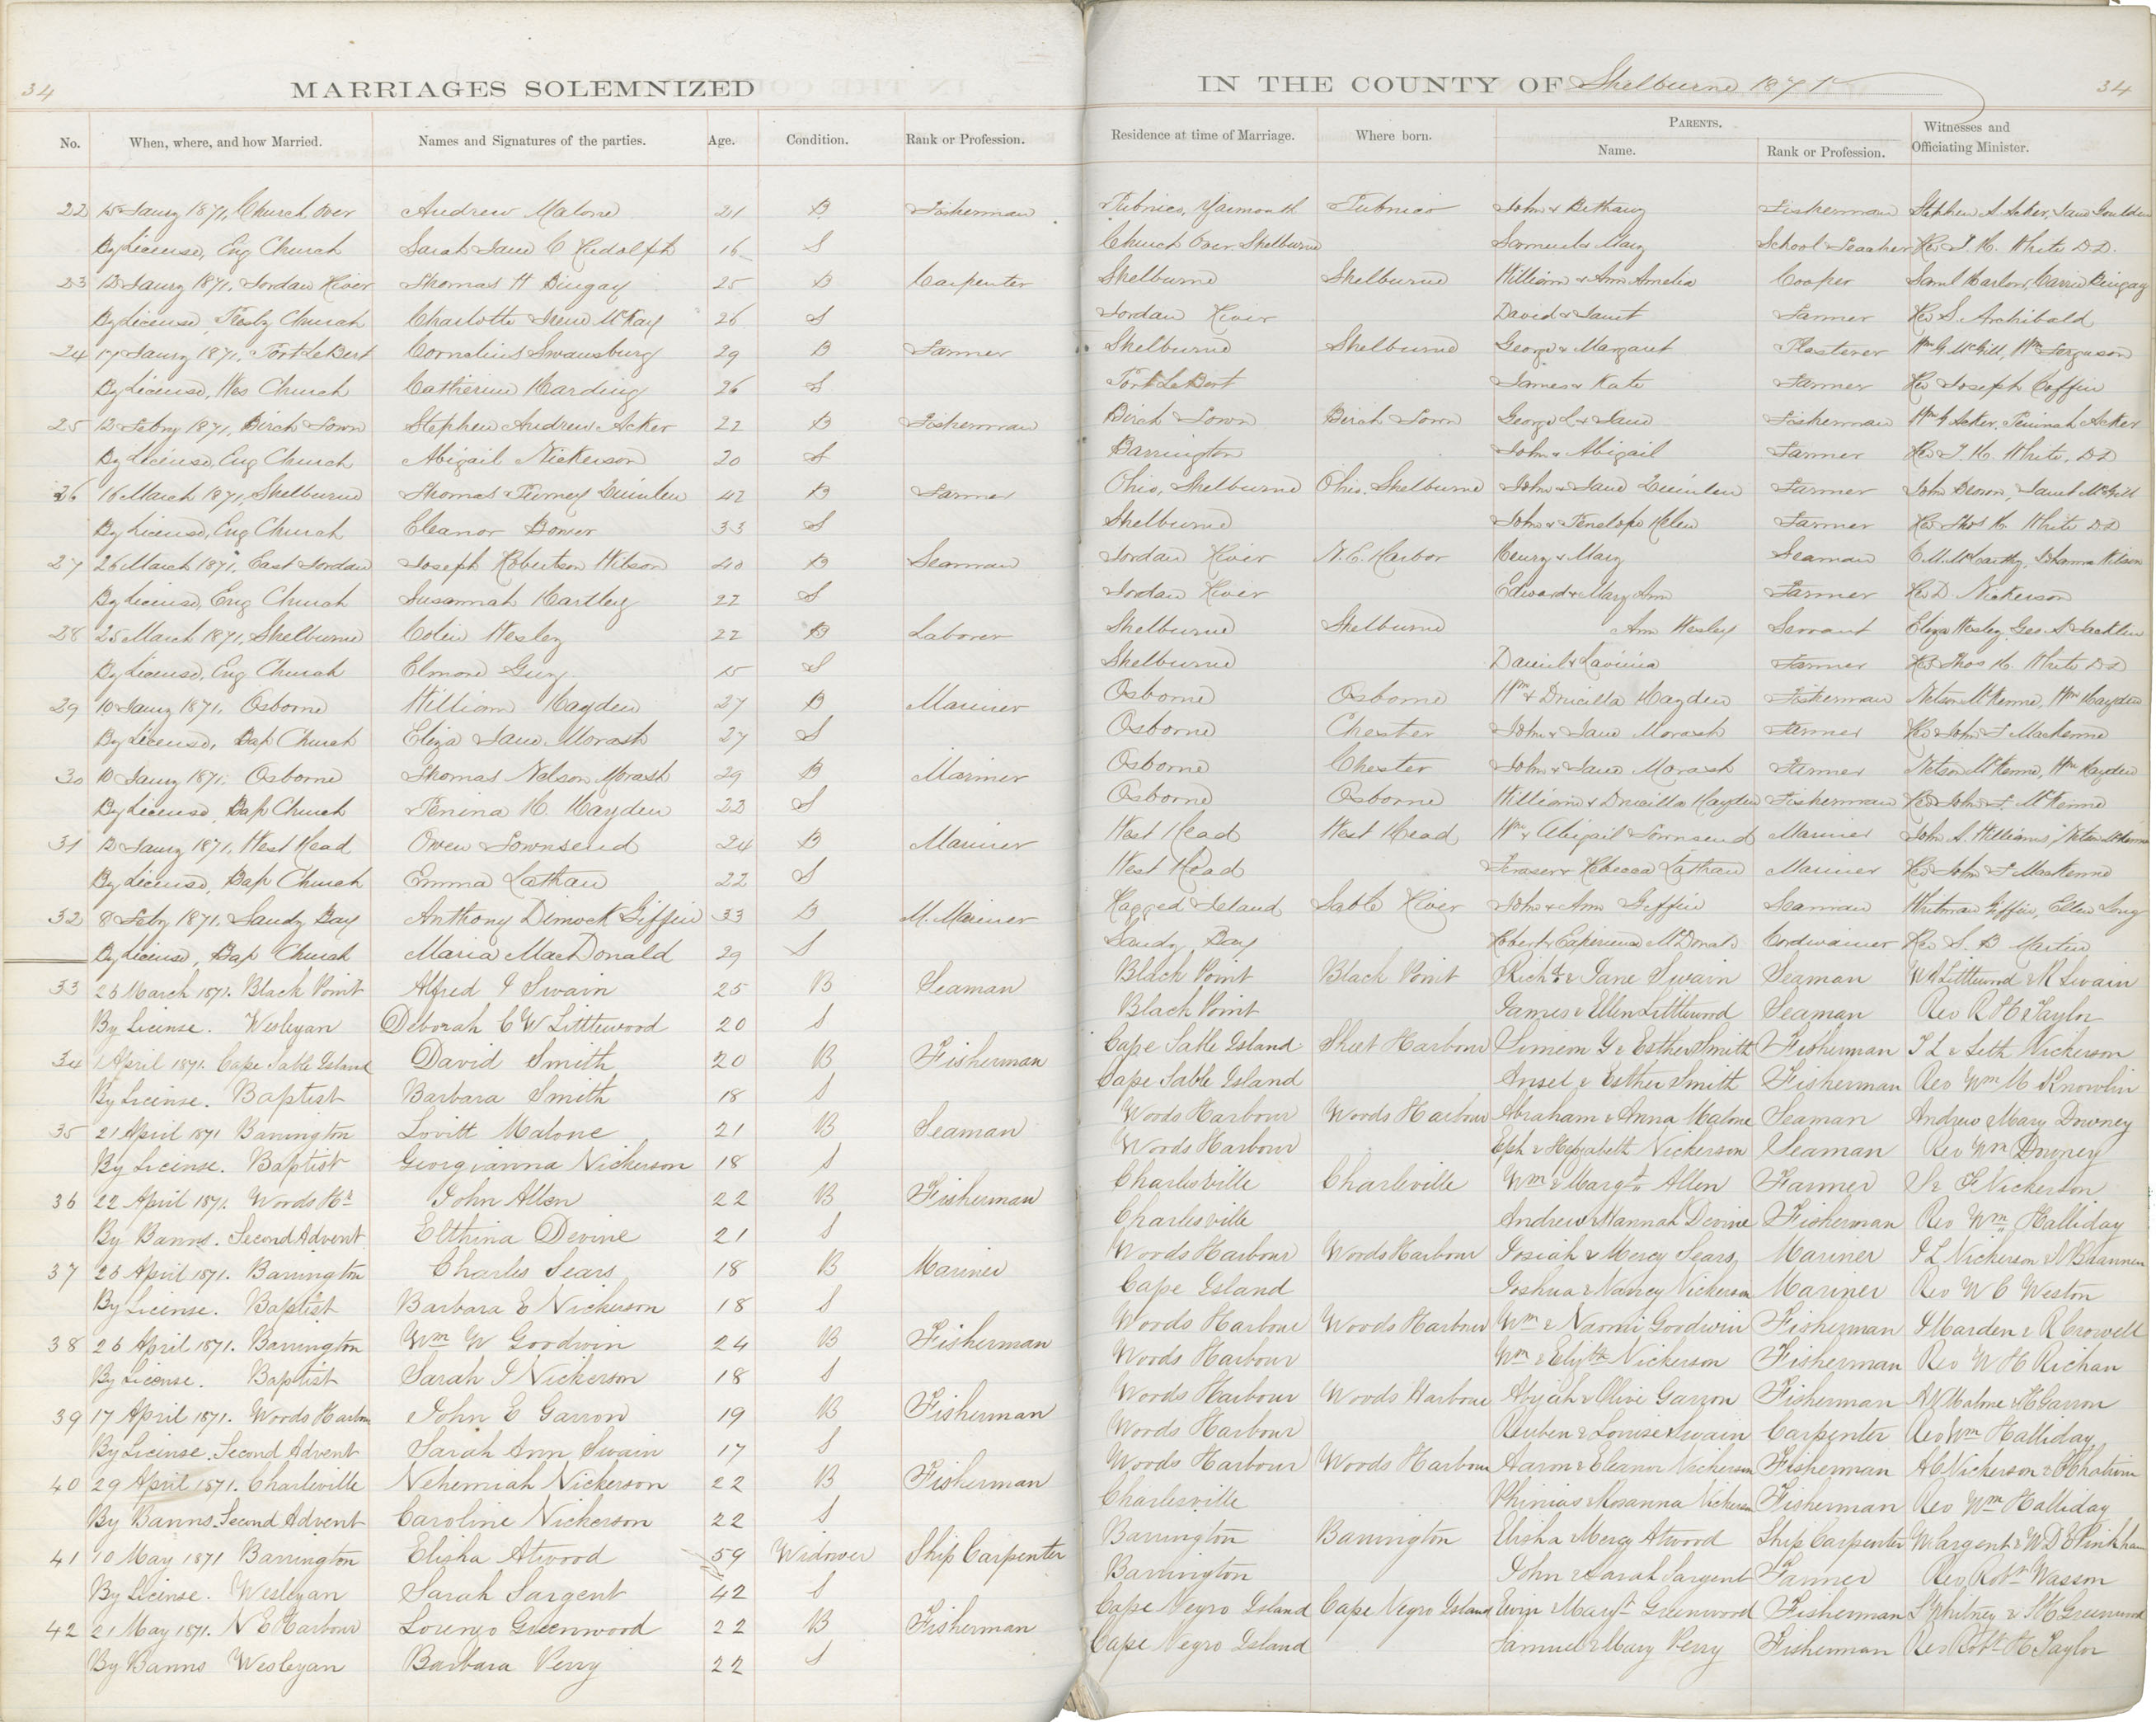 34 MARRIAGES SOLEMNIZED IN THE COUNTY OF Shelburne 1871 34
No. When, where, and how Married. Names and Signatures of the parties. Age. Condition. Rank or Profession. Residence at time of Marriage. Where born. PARENTS. Name. Rank or Profession. Witnesses and Officiating Minister.
22 Jany 1871, Church Over Andrew Malone 21 B Fisherman Pubnico, Yarmouth Pubnico John & Bethany Fisherman Stephen A. Acker, Jane Goulden
By License, Eng Church Sarah Jane C 16 S Church Over Shelburne Samuel & Mary School Teacher Rev T. H. White D.D.
23 12 Jany 1871, Jordan River Thomas H Bingay 25 B Carpenter Shelburne Shelburne William & Ann Amelia Cooper Saml Harlow, Carrie Bingay
By License, Presby Church Charlotte Irene McKay 26 S Jordan River David & Janet Farmer Rev S. Archibald
24 17 Jany 1871, Port LeBert Cornelius Swansburg 29 B Farmer Shelburne Shelburne George & Margaret Plasterer Wm G. McGill, Wm Ferguson
By License, Wes Church Catherine Harding 26 S Port LeBert James & Kate Farmer Rev Joseph Coffin
25 12 Feby 1871, Birch Town Stephen Andrew Acker 22 B Fisherman Birch Town Birch Town George L & Jane Fisherman Wm G Acker, Peninah Acker
By License, Eng Church Abigail Nickerson 20 S Barrington John & Abigail Farmer Rev T. H. White, DD
26 16 March 1871, Shelburne Thomas Quinlen 42 B Farmer Ohio, Shelburne Ohio, Shelburne John & Jane Quinlen Farmer John Bower, Janet McGill
By License, Eng Church Eleanor Bower 33 S Shelburne John & Penelope Helen Farmer Rev Thos H. White DD
27 26 March 1871, East Jordan Joseph Robertson Wilson 40 B Seaman Jordan River N. E. Harbor Henry & Mary Seaman C. M. McCarthy, Johanna Wilson
By License, Eng Church Susannah Hartley 22 S Jordan River Edward & Mary Ann Farmer Rev D. Nickerson
28 25 March 1871, Shelburne Colin Wesley 22 B Laborer Shelburne Shelburne Ann Wesley Servant Eliza Wesley, Geo A.
By License, Eng Church Elmore Guy 15 S Shelburne Daniel & Lavinia Farmer Rev Thos H. White DD
29 10 Jany 1871, Osborne William Hayden 27 B Mariner Osborne Osborne Wm & Drucilla Hayden Fisherman Nelson McKenna, Wm Hayden
By License, Bap Church Eliza Jane Morash 27 S Osborne Chester John & Jane Morash Farmer Rev John F MacKenna
30 10 Jany 1871, Osborne Thomas Nelson Morash 29 B Mariner Osborne Chester John & Jane Morash Farmer Nelson McKenna, Wm Hayden
By License, Bap Church Penina H. Hayden 23 S Osborne Osborne William & Drucilla Hayden Fisherman Rev John F. McKenna
31 12 Jany 1871, West Head Owen Townsend 24 B Mariner West Head West Head Wm & Abigail Townsend Mariner John A. Williams, Nelson McKenna
By License, Bap Church Emma Lathan 22 S West Head Fraser & Rebecca Lathan Mariner Rev John F MacKenna
32 8 Feby 1871, Sandy Bay Anthony Dimock Giffin 33 B M. Mariner Ragged Island Sable River John & Ann Giffin Seaman Whitman Giffin, Ellen Long
By License, Bap Church Maria MacDonald 29 S Sandy Bay Robert & Experience McDonald Cordwainer Rev S. B Martin
33 23 March 1871. Black Point Alfred I Swain 25 B Seaman Black Point Black Point Richd & Jane Swain Seaman W A Littlewood & R Swain
By License. Wesleyan Deborah C W Littlewood 20 S Black Point James & Ellen Littlewood Seaman Rev R H Taylor
34 1 April 1871. Cape Sable Island David Smith 20 B Fisherman Cape Sable Island Sheet Harbour Simeon G & Esther Smith Fisherman T L & Seth Nickerson
By License. Baptist Barbara Smith 18 S Cape Sable Island Ansel & Esther Smith Fisherman Rev Wm M Knowlin
35 21 April 1871 Barrington Lovitt Malone 21 B Seaman Woods Harbour Woods Harbour Abraham & Anna Malone Seaman Andrew & Mary Downey
By License. Baptist Georgianna Nickerson 18 S Woods Harbour Eph & Hepzabeth Nickerson Seaman Rev Wm Downey
36 22 April 1871. Woods Hr John Allen 22 B Fisherman Charlesville Charleville Wm & Margt Allen Farmer S & F Nickerson
By Banns. Second Advent Elthina Devine 21 S Charlesville Andrew & Hannah Devine Fisherman Rev Wm Halliday
37 23 April 1871. Barrington Charles Sears 18 B Mariner Woods Harbour Woods Harbour Josiah & Mercy Sears Mariner J L Nickerson & Brannen
By License. Baptist Barbara E Nickerson 18 S Cape Island Joshua & Nancy Nickerson Mariner Rev W C Weston
38 26 April 1871. Barrington Wm W Goodwin 24 B Fisherman Woods Harbour Woods Harbour Wm & Naomi Goodwin Fisherman I Marden & R Crowell
By License. Baptist Sarah J Nickerson 18 S Woods Harbour Wm & Elizth Nickerson Fisherman Rev W H Richan
39 17 April 1871. Woods Harbour John E Garron 19 B Fisherman Woods Harbour Woods Harbour Abijah & Olive Garron Fisherman A Malone & H Garron
By License. Second Advent Sarah Ann Swain 17 S Woods Harbour Reuben & Louise Swain Carpenter Rev Wm Halliday
40 29 April 1871. Charleville Nehemiah Nickerson 22 B Fisherman Woods Harbour Woods Harbour Aaron & Eleanor Nickerson Fisherman A C Nickerson &
By Banns. Second Advent Caroline Nickerson 22 S Charlesville Phinias & Rosanna Nickerson Fisherman Rev Wm Halliday
41 10 May 1871 Barrington Elisha Atwood 59 Widower Ship Carpenter Barrington Barrington Elisha & Mercy Atwood Ship Carpenter W Sargent & W D E Pinkham
By License. Wesleyan Sarah Sargent 42 S Barrington John & Sarah Sargent Farmer Rev Robt Wasson
42 21 May 1871. N E Harbour Lorenzo Greenwood 22 B Fisherman Cape Negro Island Cape Negro Island & Margt Greenwood Fisherman S Whitney & Greenwood
By Banns Wesleyan Barbara Perry 22 S Cape Negro Island Samuel & Mary Perry Fisherman Rev Robt H Taylor